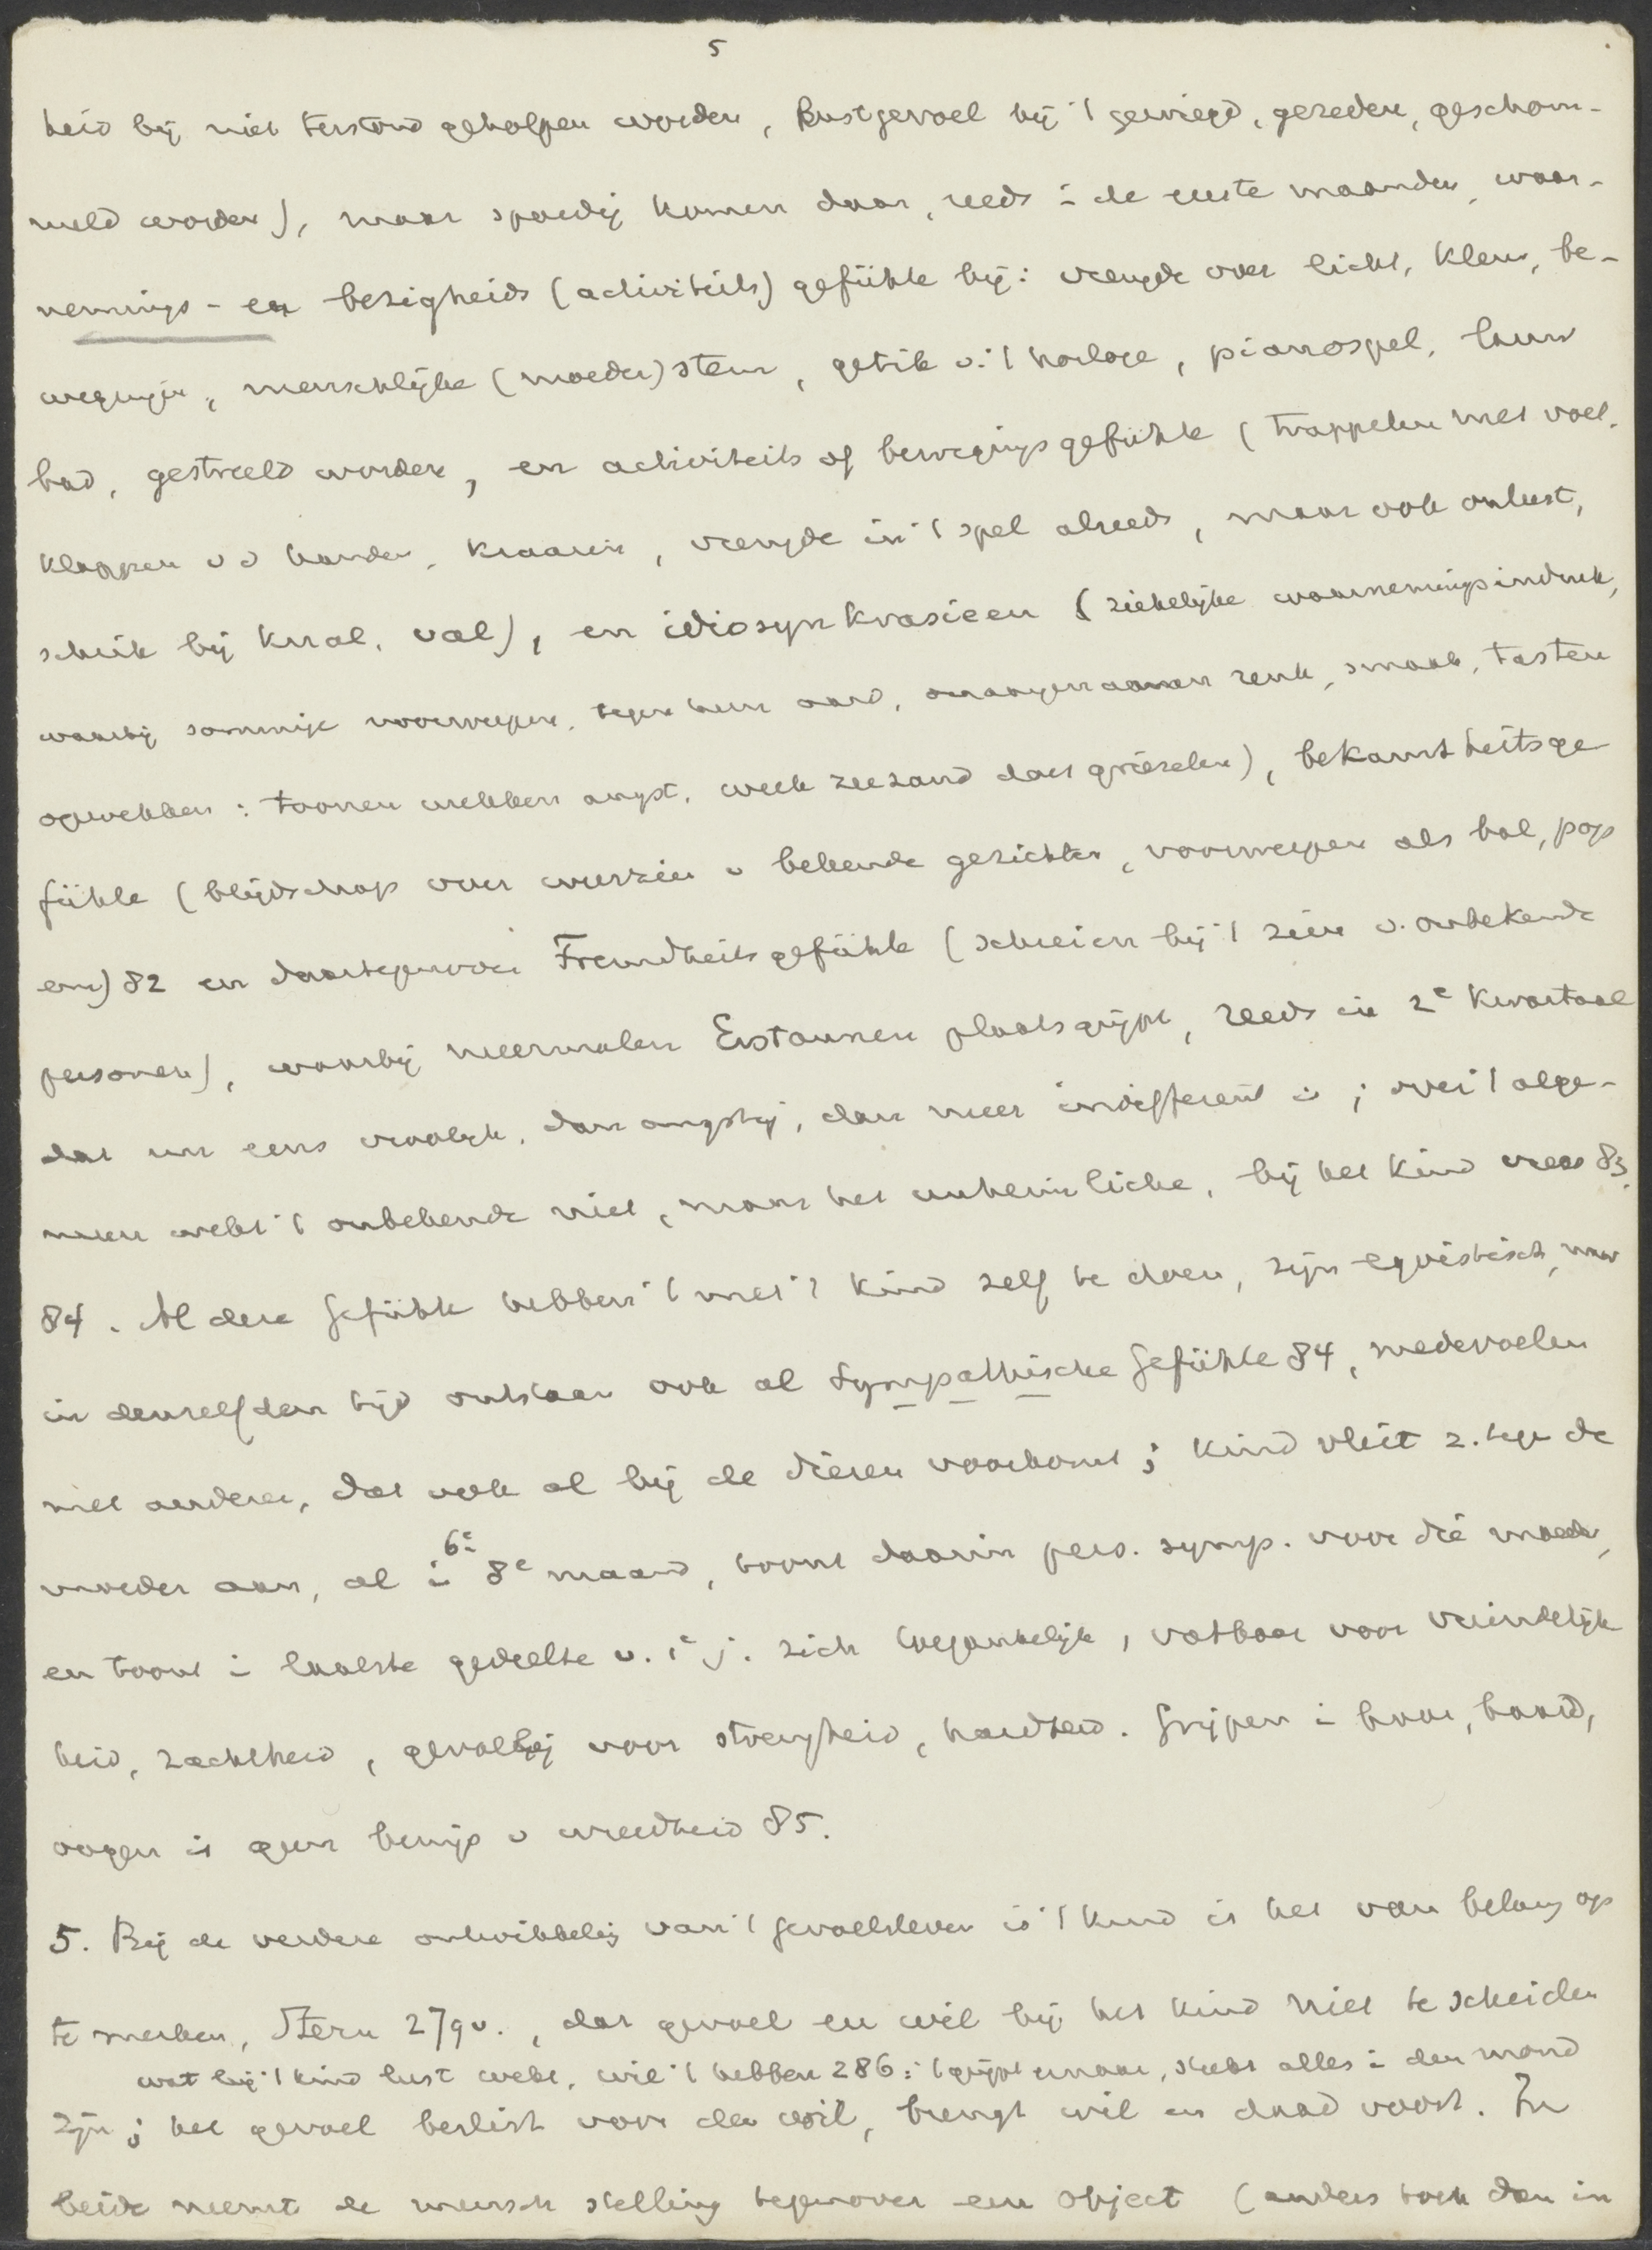 5
heid bij niet terstond geholpen worden, Rustgevoel bij 't gewiegd, gereden, geschom-
meld worden), maar spoedig komen daar, reeds i de eerste maanden, waar-
nemings- en bezigheids (activiteits) gefühle bij: vreugde over licht, kleur, be-
wegingen, menschlijke (moeder) stem, getik v. 't horloge, pianospel, lauw
bad, gestreeld worden, en activiteits of bewegingsgefühle (trappelen met voet.
klappen v d handen, kraaien, vreugde in 't spel alreeds, maar ook onlust,
schrik bij knal, val), en idiosynkrasieen (ziekelijke waarnemingsindruk,
waarbij sommige voorwerpen, tegen hun aard, onaangenamen reuk, smaak, tasten
opwekken: toonen wekken angst, week zeezand doet griezelen), bekanntheitsge
fühle (blijdschap over weerzien v bekende gezichten, voorwerpen als bal, pop
enz) 82 en daartegenover Fremdheitsgefühle (schreien bij 't zien v. onbekende
personen), waarbij meermalen Erstaunen plaatsgrijpt, reeds in 2e kwartaal
dat nu eens vroolijk, dan angstig, dan meer indifferent is; over 't alge-
meen wekt 't onbekende niet, maar het unheimliche, bij het kind vrees 83,
84. Al deze Gefühle hebben 't met 't kind zelf te doen, zijn egoistisch, maar
in denzelfden tijd ontstaan ook al Sympathische Gefühle 84, medevoelen
met anderen, dat ook al bij de dieren voorkomt; kind vleit z. tegen de
moeder aan, al i 6e 8e maand, toont daarin pers. symp. voor die moeder,
en toont i laatste gedeelte v. 1e j. zich toegankelijk, vatbaar voor vriendelijk
heid, zachtheid, gevoelig voor strengheid, hardheid. Grijpen i haar, baard,
oogen is geen bewijs v wreedheid 85.
5. Bij de verdere ontwikkeling van 't gevoelsleven i 't kind is het van belang op
te merken, Stern 279v., dat gevoel en wil bij het kind niet te scheiden
wat bij 't kind lust wekt, wil 't hebben 286: 't grijpt ernaar, steekt alles i den mond
zijn; het gevoel beslist voor den wil, brengt wil en daad voort. In
beide neemt de mensch stelling tegenover een object (anders toch dan in